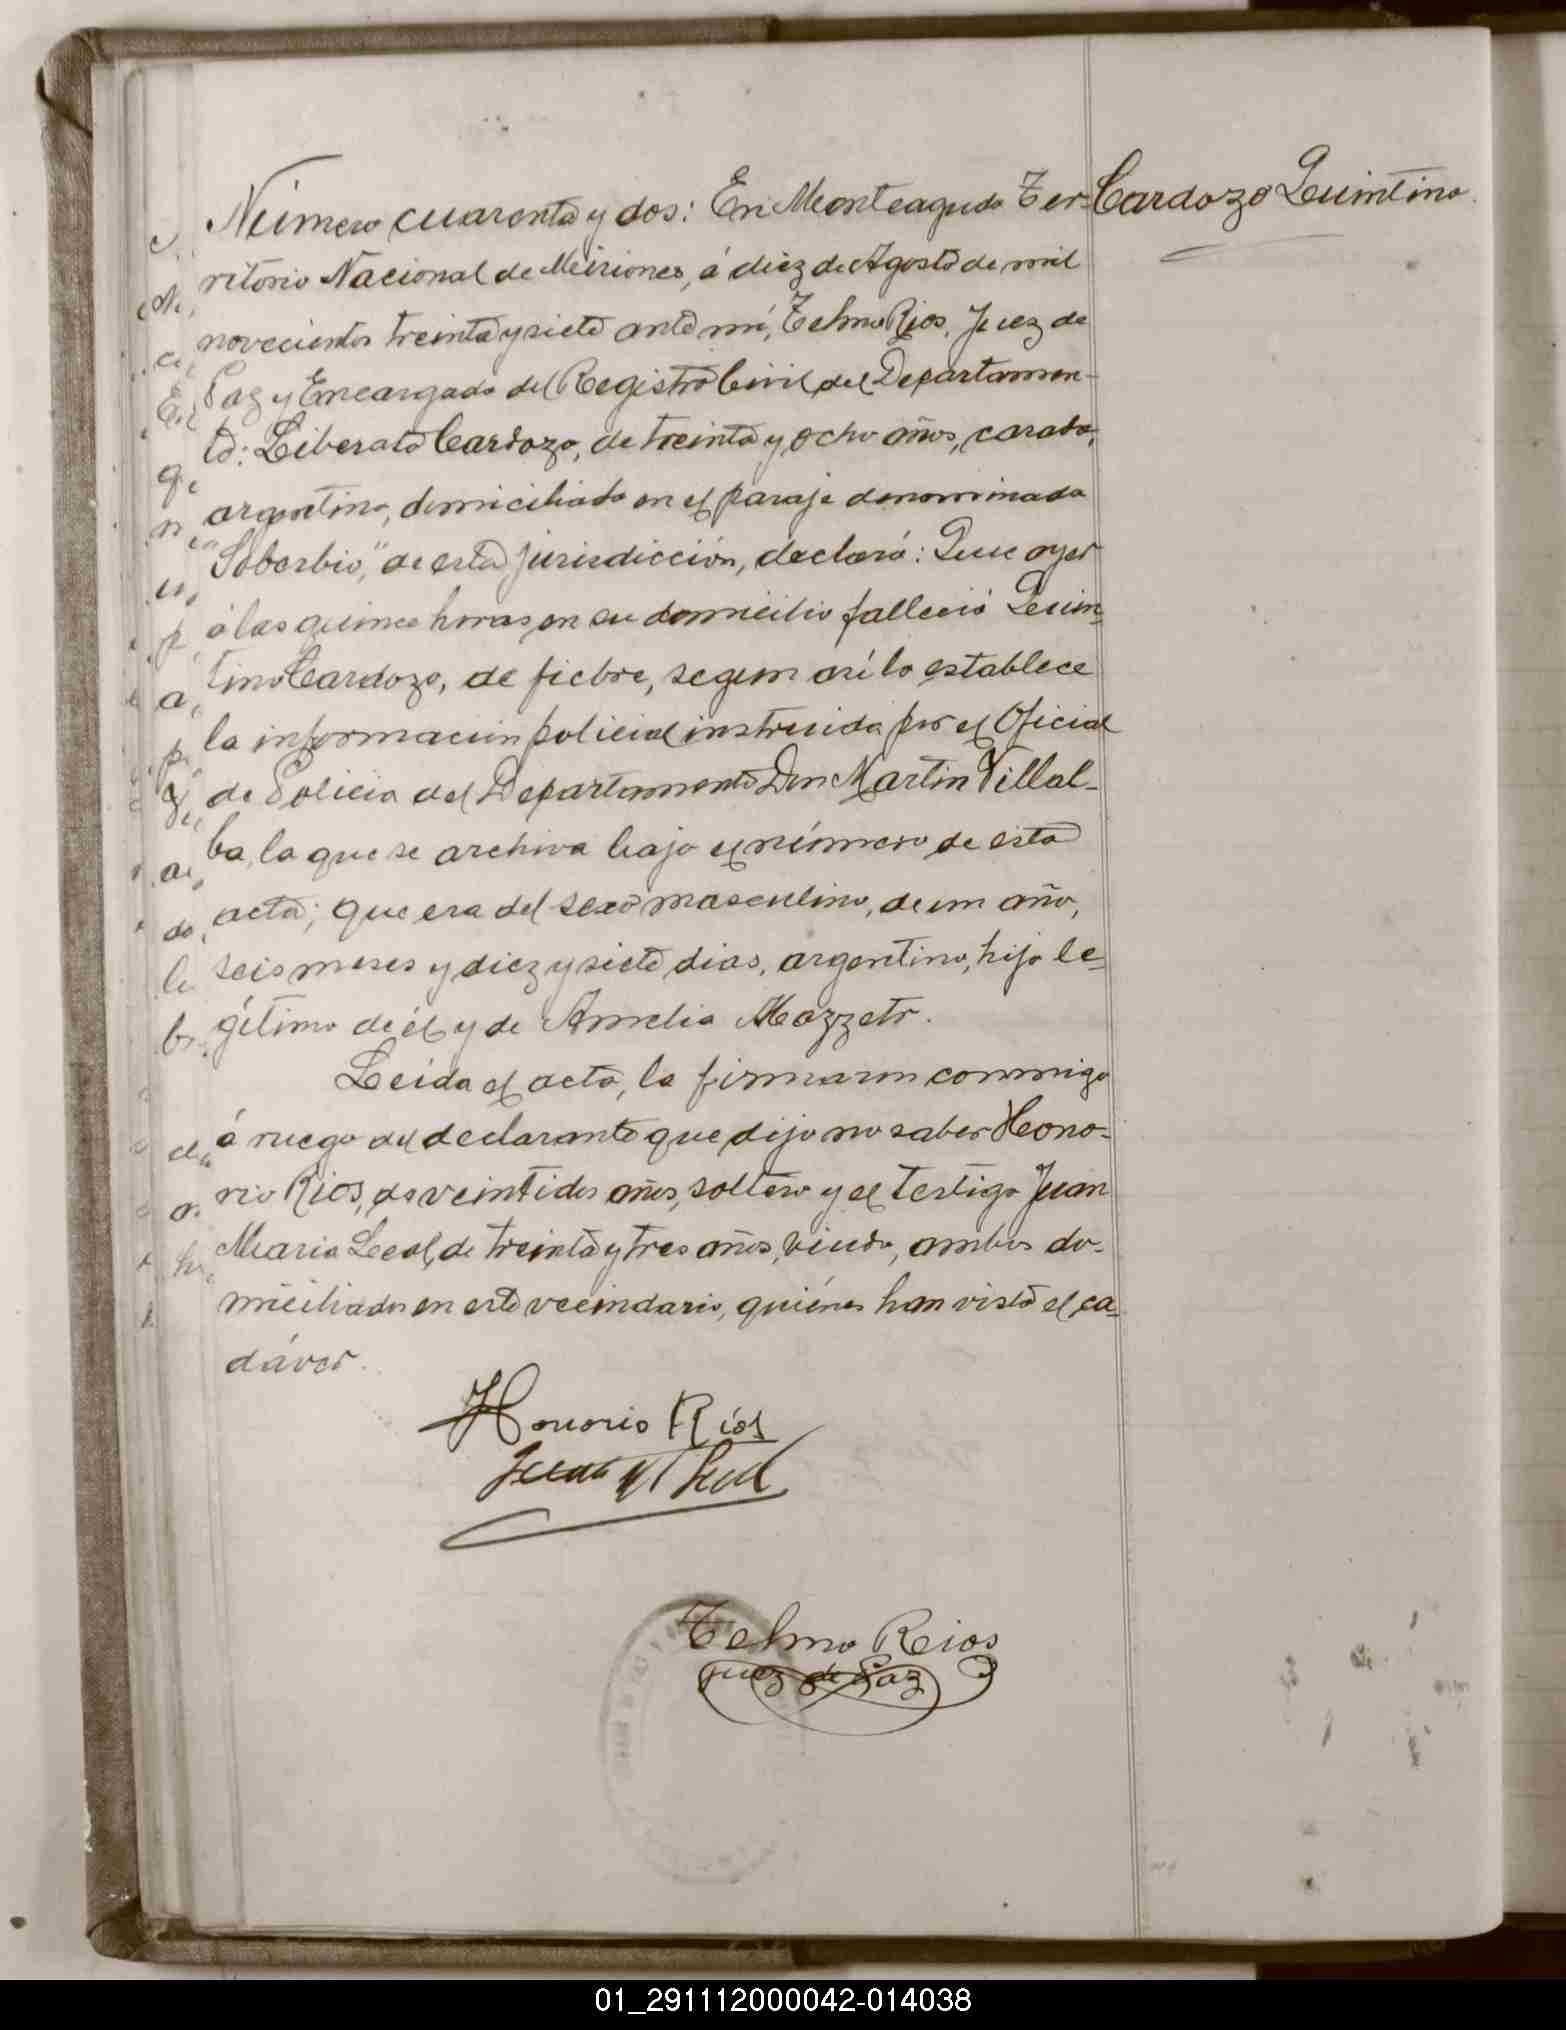 Número cuarenta y dos: En Monteagudo Ter-
Cardozo Quintino.
ritorio Nacional de Misiones, á diez de Agosto de mil
novecientos treinta y siete ante mí, Telmo Rios, Juez de
Paz y Encargado del Registro Civil del Departamen-
to: Liberato Cardozo, de treinta y ocho años, casado,
argentino, domiciliado en el paraje denominado
"Soberbio," de esta jurisdicción, declaró: Que ayer
á las quince horas en su domicilio falleció Quin-
tino Cardozo, de fiebre, segun así lo establece
la informacion policial instruida por el Oficial
de Policia del Departamento Don Martin Villal-
ba, la que se archiva bajo el número de esta
acta; que era del sexo masculino, de un año,
seis meses y diez y siete dias, argentino, hijo le-
gítimo de él y de Amelia Mazzetr.
Leida el acta, la firmaron conmigo
á ruego del declarante que dijo no saber Hono-
rio Rios, de veintidos años, soltero y el testigo Juan
Maria Leal, de treinta y tres años, viudo, ambos do-
miciliados en este vecindario, quiénes han visto el ca-
dáver.
Honorio Ríos
Juan M Leal
Telmo Rios
Juez de Paz
01_291112000042-014038